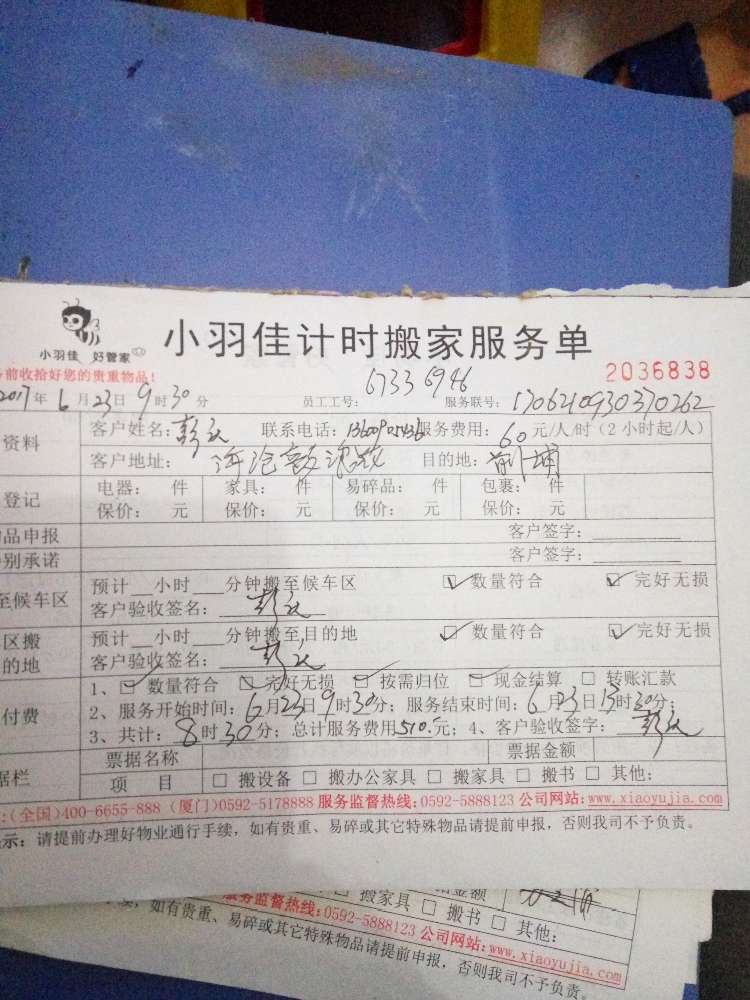 小羽佳 好管家
小羽佳计时搬家服务单
前收拾好您的贵重物品!
2036838
2017年6月23日9时30分 员工工号: 6733 6946 服务联号: 1706210930370262
资料
客户姓名:彭 联系电话: 服务费用:60元/人/时(2小时起/人)
客户地址:海沧 目的地:前埔
登记
电器: 件 家具: 件 易碎品: 件 包裹: 件
保价: 元 保价: 元 保价: 元 保价: 元
品申报 客户签字:
别承诺 客户签字:
至候车区
预计__小时___分钟搬至候车区 ☑数量符合 ☑完好无损
客户验收签名:彭
区搬
的地
预计__小时___分钟搬至目的地 ☑数量符合 ☑完好无损
客户验收签名:彭
付费
1、☑数量符合 ☑完好无损 ☑按需归位 ☑现金结算 □转账汇款
2、服务开始时间:6月23日9时30分;服务结束时间:6月23日 时30分;
3、共计:8时30分;总计服务费用510.元;4、客户验收签字:彭
据栏
票据名称 票据金额
项 目 □搬设备 □搬办公家具 □搬家具 □搬书 □其他:
:(全国)400-6655-888 (厦门)0592-5178888 服务监督热线:0592-5888123 公司网站:www.xiaoyujia.com
示:请提前办理好物业通行手续,如有贵重、易碎或其它特殊物品请提前申报,否则我司不予负责。
金额
搬家具 □搬书 □其他:
服务监督热线:0592-5888123 公司网站:www.xiaoyujia.com
如有贵重、易碎或其它特殊物品请提前申报,否则我司不予负责。